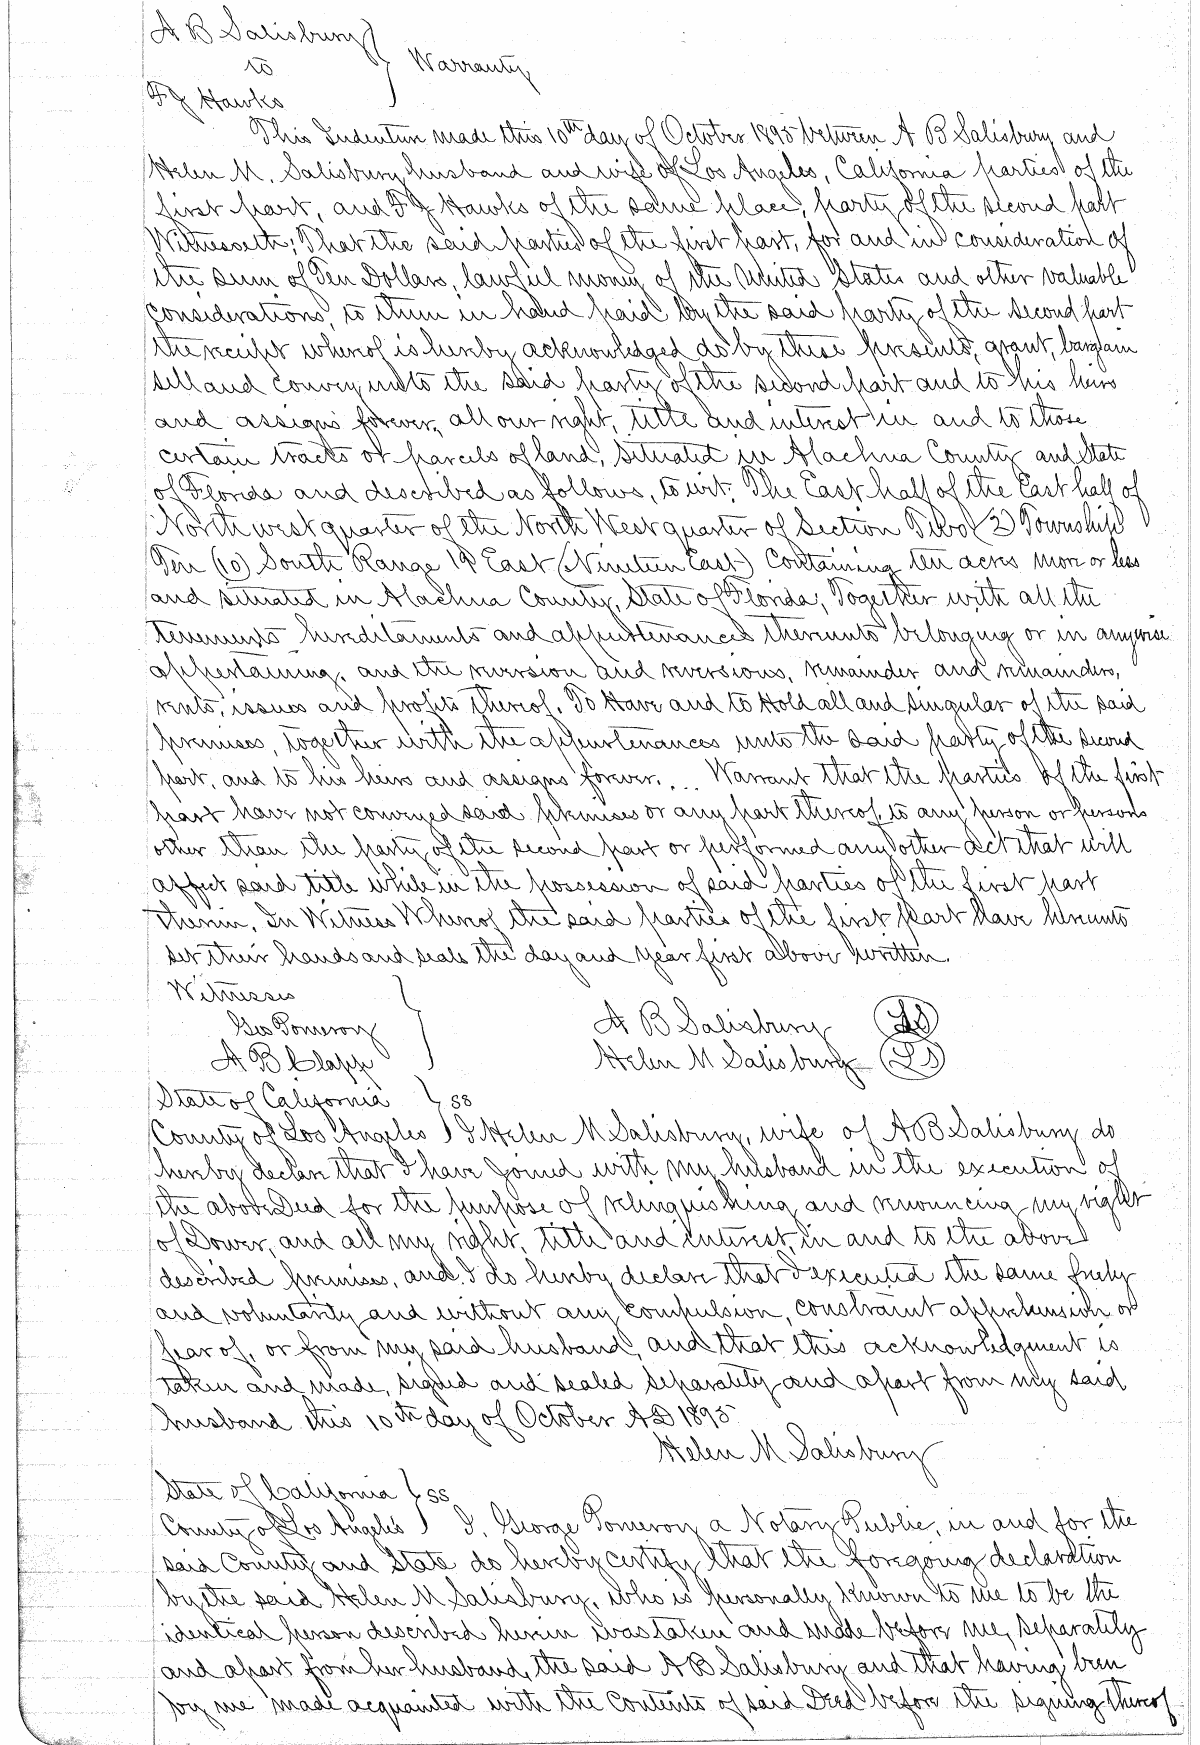 A B Salisbury
to } Warranty
F J Hawks
This Indenture made this 10th day of October 1895 between A B Salisbury and
Helen M. Salisbury husband and wife of Los Angeles, California parties of the
first part, and F J Hawks of the same place, party of the second part
Witnesseth; That the said parties of the first part, for and in consideration of
the sum of Ten Dollars, lawful money of the United States and other valuable
considerations, to them in hand paid by the said party of the second part
the receipt whereof is hereby acknowledged do by these presents, grant, bargain
sell and convey unto the said party of the second part and to his heirs
and assigns forever, all our right, title and interest in and to those
certain tracts or parcels of land, situated in Alachua County and State
of Florida and described as follows, to wit; The East half of the East half of
North west quarter of the North West quarter of Section Two (2) Township
Ten (10) South Range 19 East (Nineteen East) Containing ten acres more or less
and situated in Alachua County, State of Florida; Together with all the
tenements hereditaments and appurtenances thereunto belonging or in anywise
appertaining, and the reversion and reversions, remainder and remainders,
rents, issues and profits thereof. To Have and to Hold all and singular of the said
premises, together with the appurtenances unto the said party of the second
part, and to his heirs and assigns forever. ... Warrant that the parties of the first
part have not conveyed said premises or any part thereof, to any person or persons
other than the party of the second part or performed any other act that will
affect said title while in the possession of said parties of the first part
therein. In Witness Whereof the said parties of the first part have hereunto
set their hands and seals the day and year first above written.
Witnesses
Geo Pomeroy A B Salisbury (LS)
A B Clapp Helen M Salisbury (LS)
State of California } ss
County of Los Angeles ) I Helen M Salisbury, wife of A B Salisbury do
hereby declare that I have joined with my husband in the execution of
the above Deed for the purpose of relinquishing and renouncing my right
of Dower, and all my right, title and interest, in and to the above
described premises, and I do hereby declare that I executed the same freely
and voluntarily and without any compulsion, constraint apprehension or
fear of, or from my said husband, and that this acknowledgment is
taken and made, signed and sealed separately and apart from my said
husband this 10th day of October AD 1895
Helen M Salisbury
State of California } ss
County of Los Angeles ) I, George Pomeroy a Notary Public, in and for the
said County and State do hereby certify that the foregoing declaration
by the said Helen M Salisbury, who is personally known to me to be the
identical person described herein was taken and made before me, separately
and apart from her husband, the said A B Salisbury and that having been
by me made acquainted with the Contents of said Deed before the signing thereof